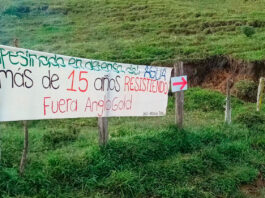 en defensa del AGUA
más de 15 años RESISTIENDO
Fuera AngloGold